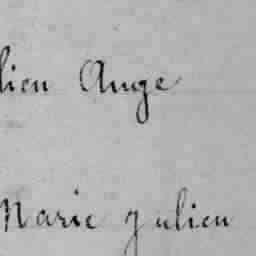 lien Ange
Marie Julien